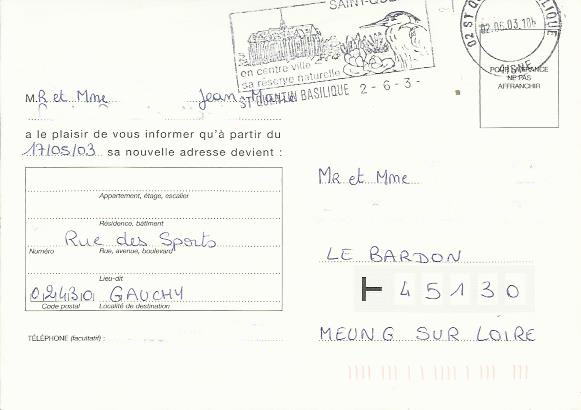 SAINT-QUE
en centre ville
sa réserve naturelle
ST QUENTIN BASILIQUE 2-6-3-
02 ST Q ILIQUE
02.06.03.18h
AISNE
POUR LA FRANCE
NE PAS
AFFRANCHIR
MR et Mme Jean Marie
a le plaisir de vous informer qu'à partir du
17/05/03 sa nouvelle adresse devient :
Appartement, étage, escalier
Résidence, bâtiment
Rue des Sports
Numéro Rue, avenue, boulevard
Lieu-dit
02430 GAUCHY
Code postal Localité de destination
TÉLÉPHONE (facultatif) :
MR et Mme
LE BARDON
45130
MEUNG SUR LOIRE